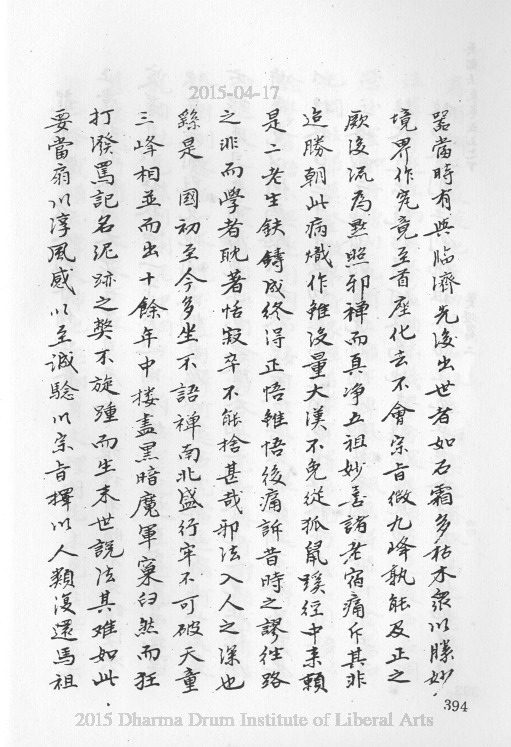 2015-04-17
器當時有與臨濟先後出世者如石霜多枯木眾以勝妙
境界作究竟至首座化去不會宗旨微九峰孰能及正之
厥後流為默照邪禪而真淨五祖妙喜諸老宿痛斥其非
迨勝朝此病熾作雖沒量大漢不免從狐鼠蹊徑中來賴
是二老生鉄鑄成終得正悟雖悟後痛訴昔時之謬往路
之非而學者耽著恬寂卒不能捨甚哉邪法入人之深也
繇是 國初至今多坐不語禪南北盛行牢不可破天童
三峰相並而出十餘年中摟盡黑暗魔軍窠臼然而狂
打潑罵記名泥跡之獘不旋踵而生末世說法其难如此
要當扇以淳風感以至誠驗以宗旨擇以人類復還馬祖
394
2015 Dharma Drum Institute of Liberal Arts